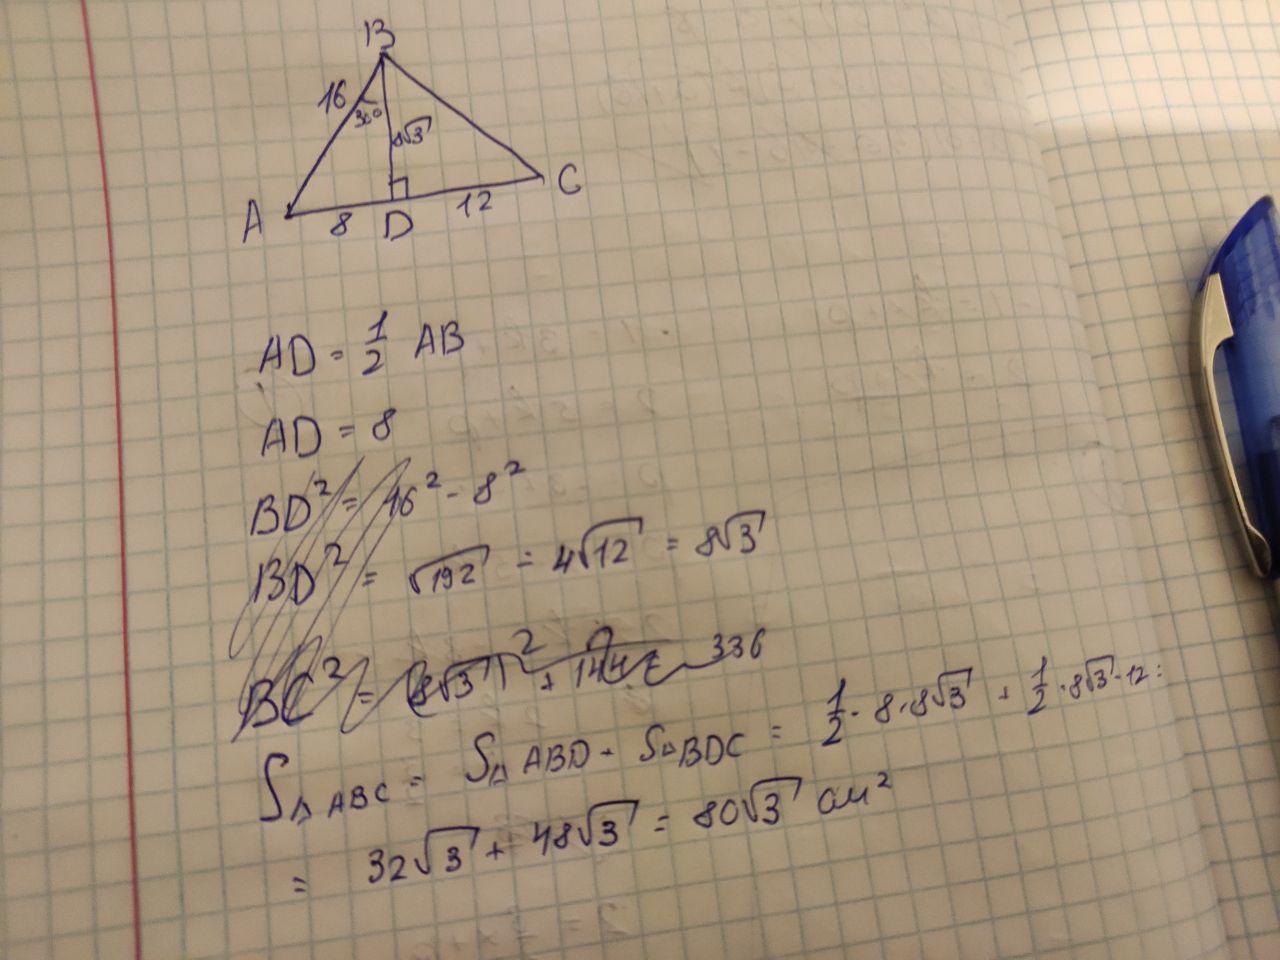 B
16
30°
8√3
A
8
D
12
C
AD = 1/2 AB
AD = 8
BD² = 16² - 8²
BD² = √192 = 4√12 = 8√3
BC² = (8√3)² + 144 = 336
S△ABC = S△ABD + S△BDC = 1/2 · 8 · 8√3 + 1/2 · 8√3 · 12 =
= 32√3 + 48√3 = 80√3 см²